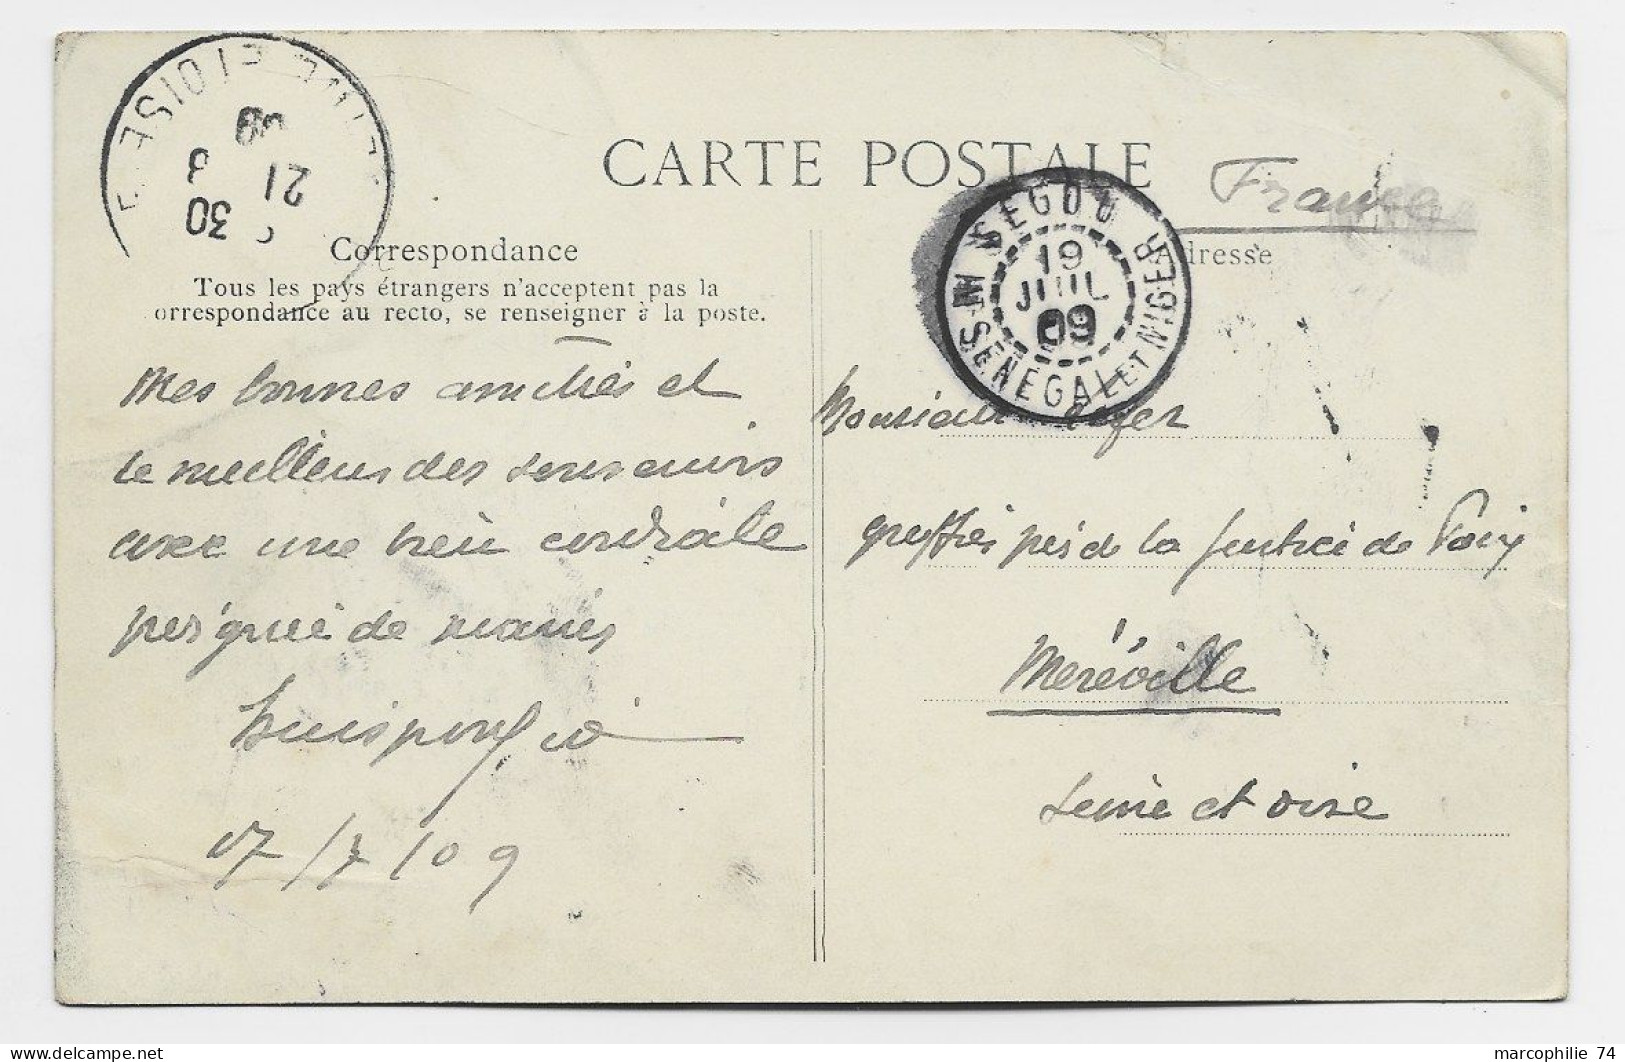 CARTE POSTALE
France
Correspondance
Adresse
Tous les pays étrangers n'acceptent pas la
orrespondance au recto, se renseigner à la poste.
SEGOU
19
JUIL
09
Ht SENEGAL ET NIGER
ET OISE
30
21 8
09
Mes bonnes amitiés et
le meilleur des souvenirs
avec une bien cordiale
poignée de mains
17/7/09
Monsieur
greffier près de la Justice de Paix
Meréville
Seine et oise
marcophilie 74